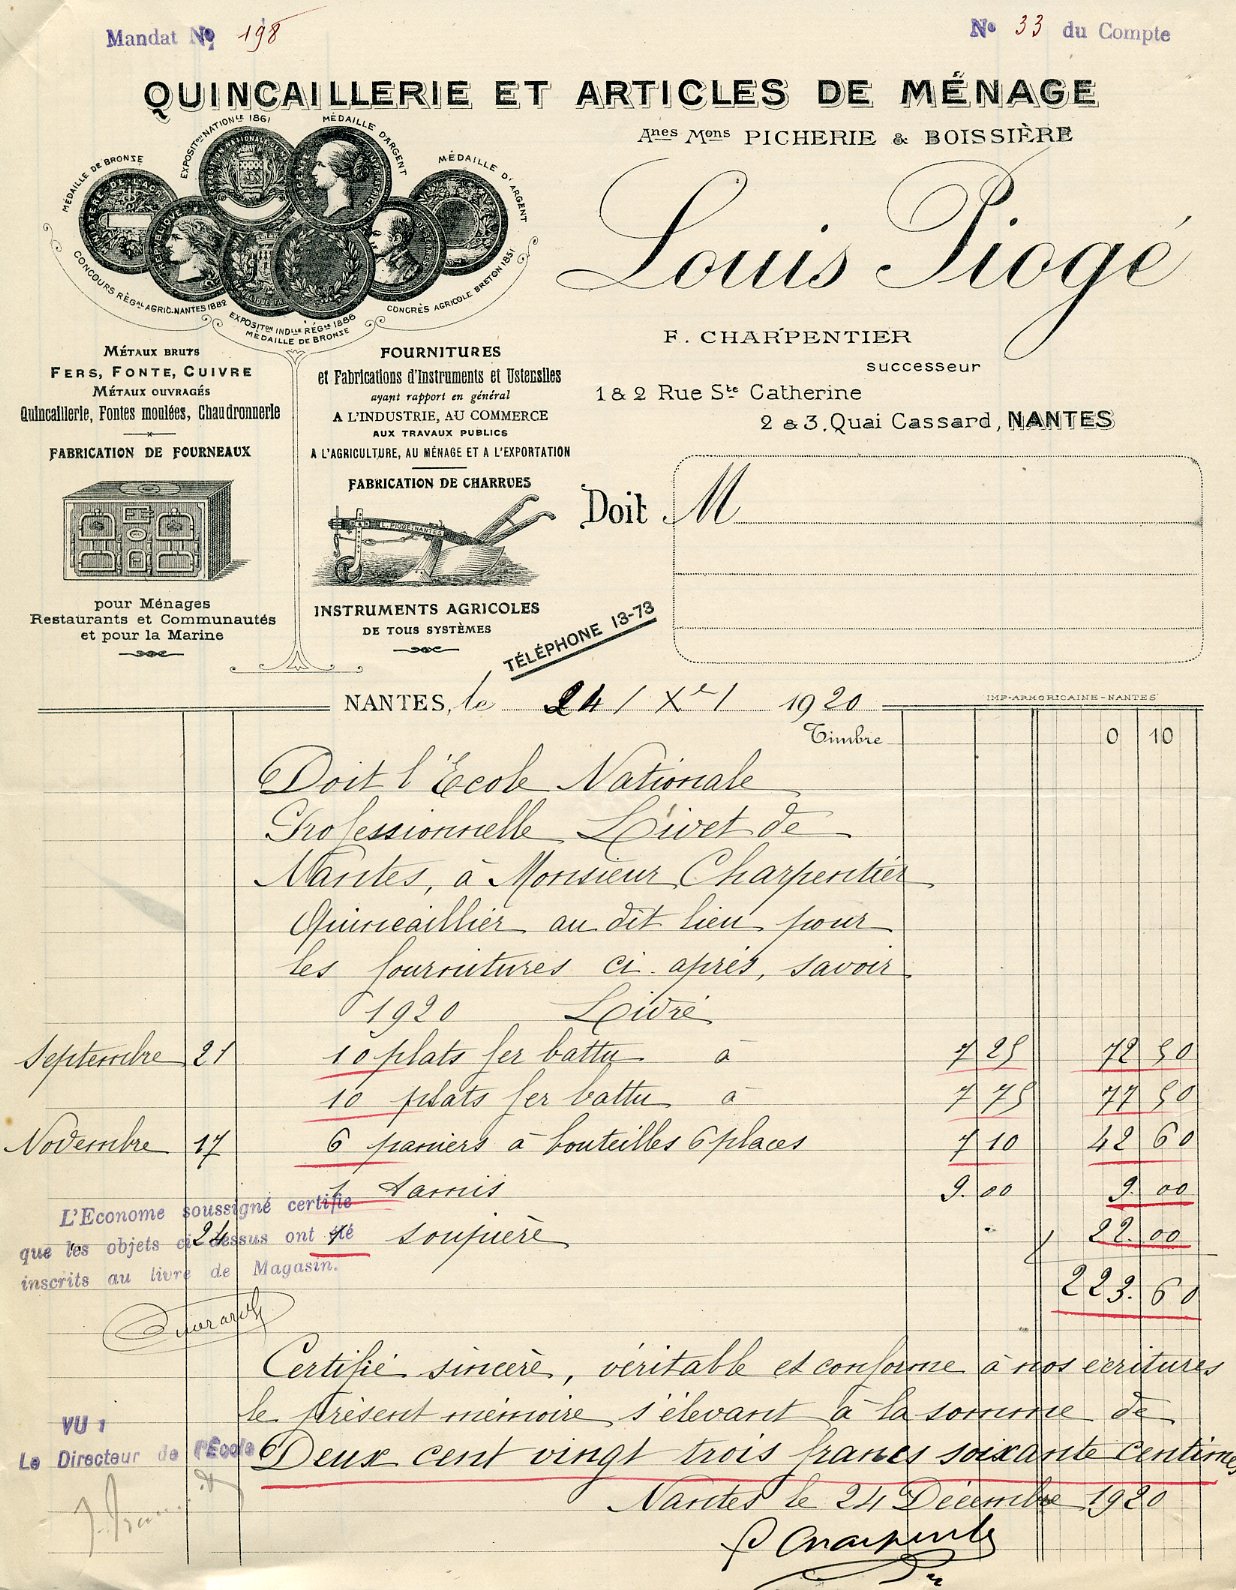 Mandat No 198
No 33 du Compte
QUINCAILLERIE ET ARTICLES DE MÉNAGE
Anes Mons PICHERIE & BOISSIÈRE
Louis Piogé
F. CHARPENTIER
successeur
1 & 2 Rue Ste Catherine
2 & 3, Quai Cassard, NANTES
MÉDAILLE DE BRONZE
EXPOSITon NATIONLE 1861
MÉDAILLE D'ARGENT
MÉDAILLE D'ARGENT
CONCOURS RÉGAL AGRIC. NANTES 1882
EXPOSITon INDLLE RÉGLE 1886
MÉDAILLE DE BRONZE
CONGRÈS AGRICOLE BRETON 1851
MÉTAUX BRUTS
FERS, FONTE, CUIVRE
MÉTAUX OUVRAGÉS
Quincaillerie, Fontes moulées, Chaudronnerie
FABRICATION DE FOURNEAUX
pour Ménages
Restaurants et Communautés
et pour la Marine
FOURNITURES
et Fabrications d'Instruments et Ustensiles
ayant rapport en général
A L'INDUSTRIE, AU COMMERCE
AUX TRAVAUX PUBLICS
A L'AGRICULTURE, AU MÉNAGE ET A L'EXPORTATION
FABRICATION DE CHARRUES
L. PIOGÉ NANTES
INSTRUMENTS AGRICOLES
DE TOUS SYSTÈMES
Doit M
TÉLÉPHONE 13-73
NANTES, le 24 / Xe / 1920
IMP-ARMORICAINE-NANTES
Timbre 0 10
Doit l'Ecole Nationale
Professionnelle Livet de
Nantes, à Monsieur Charpentier
Quincaillier au dit lieu pour
les fournitures ci-après, savoir
1920 Livré
Septembre 21 10 plats fer battu à 7 25 72 50
10 plats fer battu à 7 75 77 50
Novembre 17 6 paniers à bouteilles 6 places 7 10 42 60
1 tamis 9.00 9.00
24 1 soupière 22.00
223.60
L'Econome soussigné certifie
que les objets ci-dessus ont été
inscrits au livre de Magasin.
Certifié sincère, véritable et conforme à nos écritures
le présent mémoire s'élevant à la somme de
Deux cent vingt trois francs soixante centimes
VU :
Le Directeur de l'École
Nantes le 24 Décembre 1920
F Charpentier